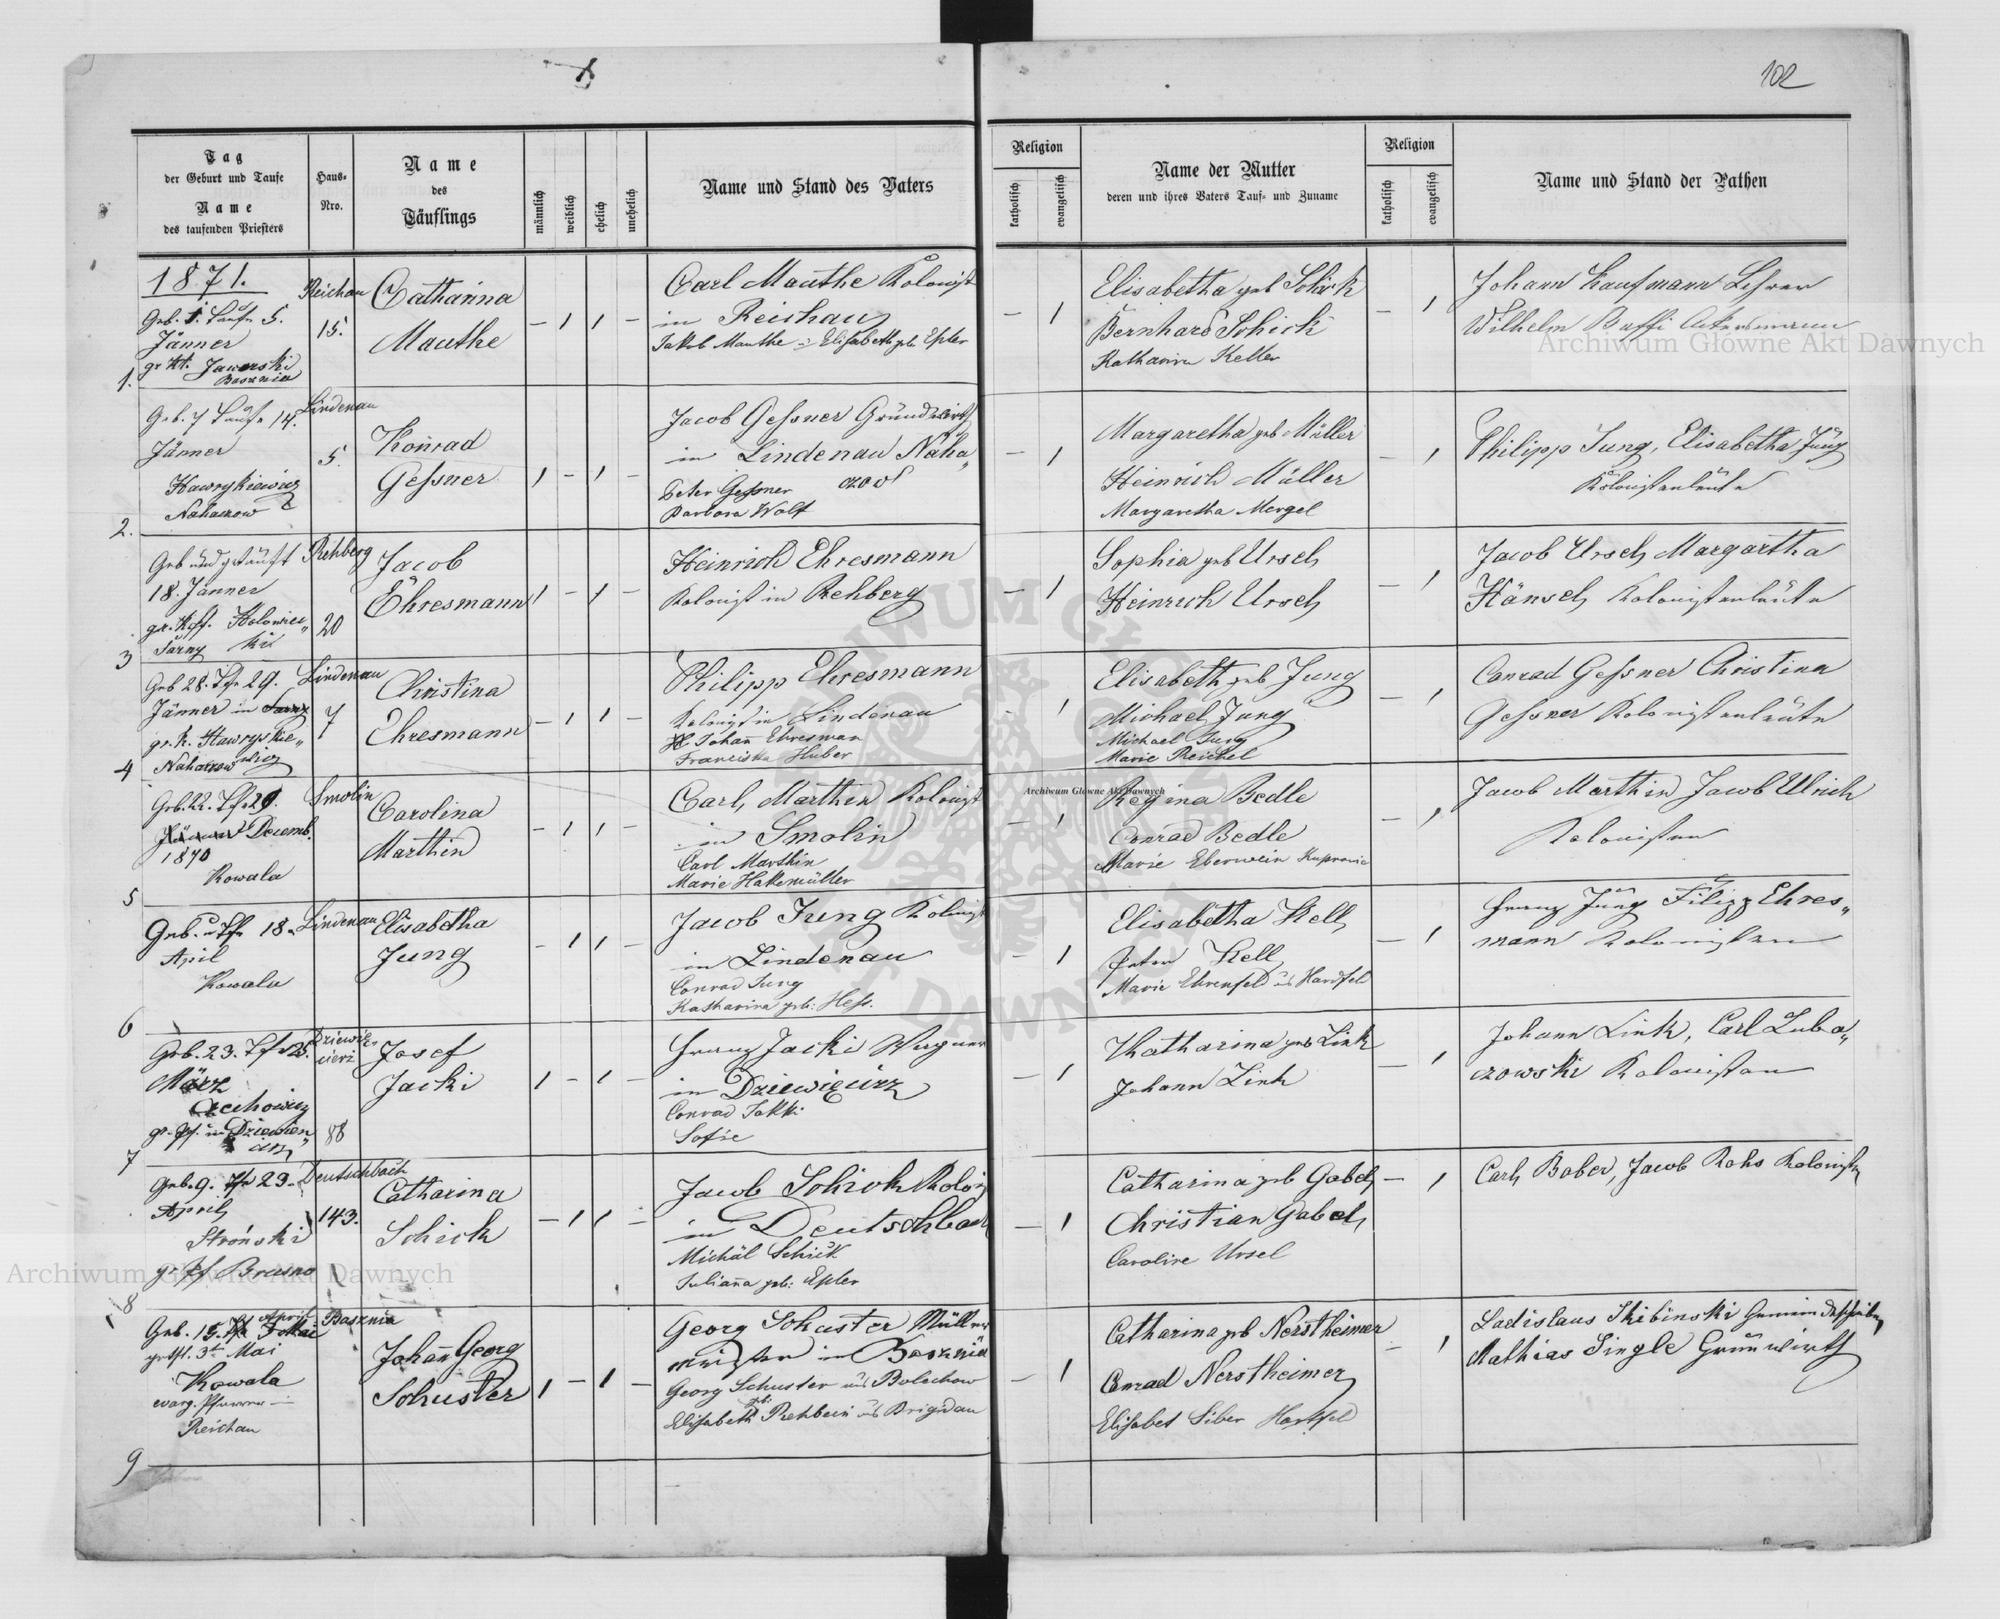 102
Tag
der Geburt und Taufe
Name
des taufenden Priesters
Haus-
Nro.
Name
des
Täuflings
männlich
weiblich
ehelich
unehelich
Name und Stand des Vaters
Religion
katholisch
evangelisch
Name der Mutter
deren und ihres Vaters Tauf- und Zuname
Religion
katholisch
evangelisch
Name und Stand der Pathen
1871.
Geb. 1. Taufe 5.
Jänner
gr. kt. Jaworski
Basznia
1.
Reichau
15.
Catharina
Mauthe
- 1 1 -
Carl Mauthe Kolonist
in Reichau
Jakob Mauthe Elisabeth geb Epler
- 1
Elisabetha geb Schick
Bernhard Schick
Katharina Keller
- 1
Johann Kaufmann Lehrer
Wilhelm Buffi Ackersmann
Geb. 7 Taufe 14.
Jänner
Hawrykiewicz
Nahaczow
2.
Lindenau
5.
Konrad
Gessner
1 - 1 -
Jacob Gessner Grundwirth
in Lindenau Naha„
czow
Peter Gessner
Barbara Wolf
- 1
Margaretha geb Müller
Heinrich Müller
Margaretha Mergel
- 1
Philipp Jung, Elisabetha Jung
Kolonistenleute
Geb und getauft
18. Jänner
gr. Kff. Holowiec„
Sarny ki
3
Rehberg
20
Jacob
Ehresmann
1 - 1 -
Heinrich Ehresmann
Kolonist in Rehberg
- 1
Sophia geb Ursch
Heinrich Ursch
- 1
Jacob Ursch Margartha
Hänsch Kolonistenleute
Geb 28. Tfe 29.
Jänner in Sarny
gr. k. Hawryskie„
Nahaczow wicz
4
Lindenau
7
Christina
Ehresmann
- 1 1 -
Philipp Ehresmann
Kolonist in Lindenau
Johann Ehresman
Franciska Huber
- 1
Elisabeth geb Jung
Michael Jung
Michael Jung
Marie Reichel
- 1
Conrad Gessner Christina
Gessner Kolonistenleute
Geb. 22. Tfe 29.
Jänner Decemb.
1870
Kowala
5
Smolin
Carolina
Marthin
- 1 1 -
Carl Marthin Kolonist
in Smolin
Carl Marthin
Marie Hakemüller
- 1
Regina Bedle
Conrad Bedle
Marie Eberwein
- 1
Jacob Marthin Jacob Ulrich
Kolonisten
Geb. u Tfe 18.
April
Kowala
6
Lindenau
Elisabetha
Jung
- 1 1 -
Jacob Jung Kolonist
in Lindenau
Conrad Jung
Katharina geb: Hess.
- 1
Elisabetha Kell
Peter Kell
Marie Ehrenfeld
- 1
Franz Jung Filipp Ehres„
mann Kolonisten
Geb. 23. Tfe 25.
März
gr. Pf. in Dziewien„
7
88
Josef
Jacki
1 - 1 -
Franz Jacki Wagner
in Dziewiencirz
Conrad Jakki
Sofie
- 1
Katharina geb Link
Johann Link
- 1
Johann Link, Carl Luba„
czowski Kolonisten
Geb. 9. Tfe 23.
April
Stroński
gr. Pf Brusno
8
Deutschbach
143.
Catharina
Schick
- 1 1 -
Jacob Schick Kolon
in Deutschbach
Michäl Schick
Juliana geb: Epler
- 1
Catharina geb Gabel
Christian Gabel
Caroline Ursel
- 1
Carl Bober, Jacob Rohs Kolonisten
Geb. 15. April
getft. 3ten Mai
Kowala
evang. Pfarrer
Reichau
9
Basznia
Johann Georg
Schuster
1 - 1 -
Georg Schuster Müller
meister in Basznia
Georg Schuster aus Bolechow
Elisabeth geb: Rehbein aus Brigidau
- 1
Catharina geb Nerstheimer
Conrad Nerstheimer
Elisabet Siber Hartfeld
- 1
Ladislaus Skibinski Gemeindeschreiber
Mathias Single Grundwirth
Archiwum Główne Akt Dawnych
Archiwum Główne Akt Dawnych
Archiwum Główne Akt Dawnych